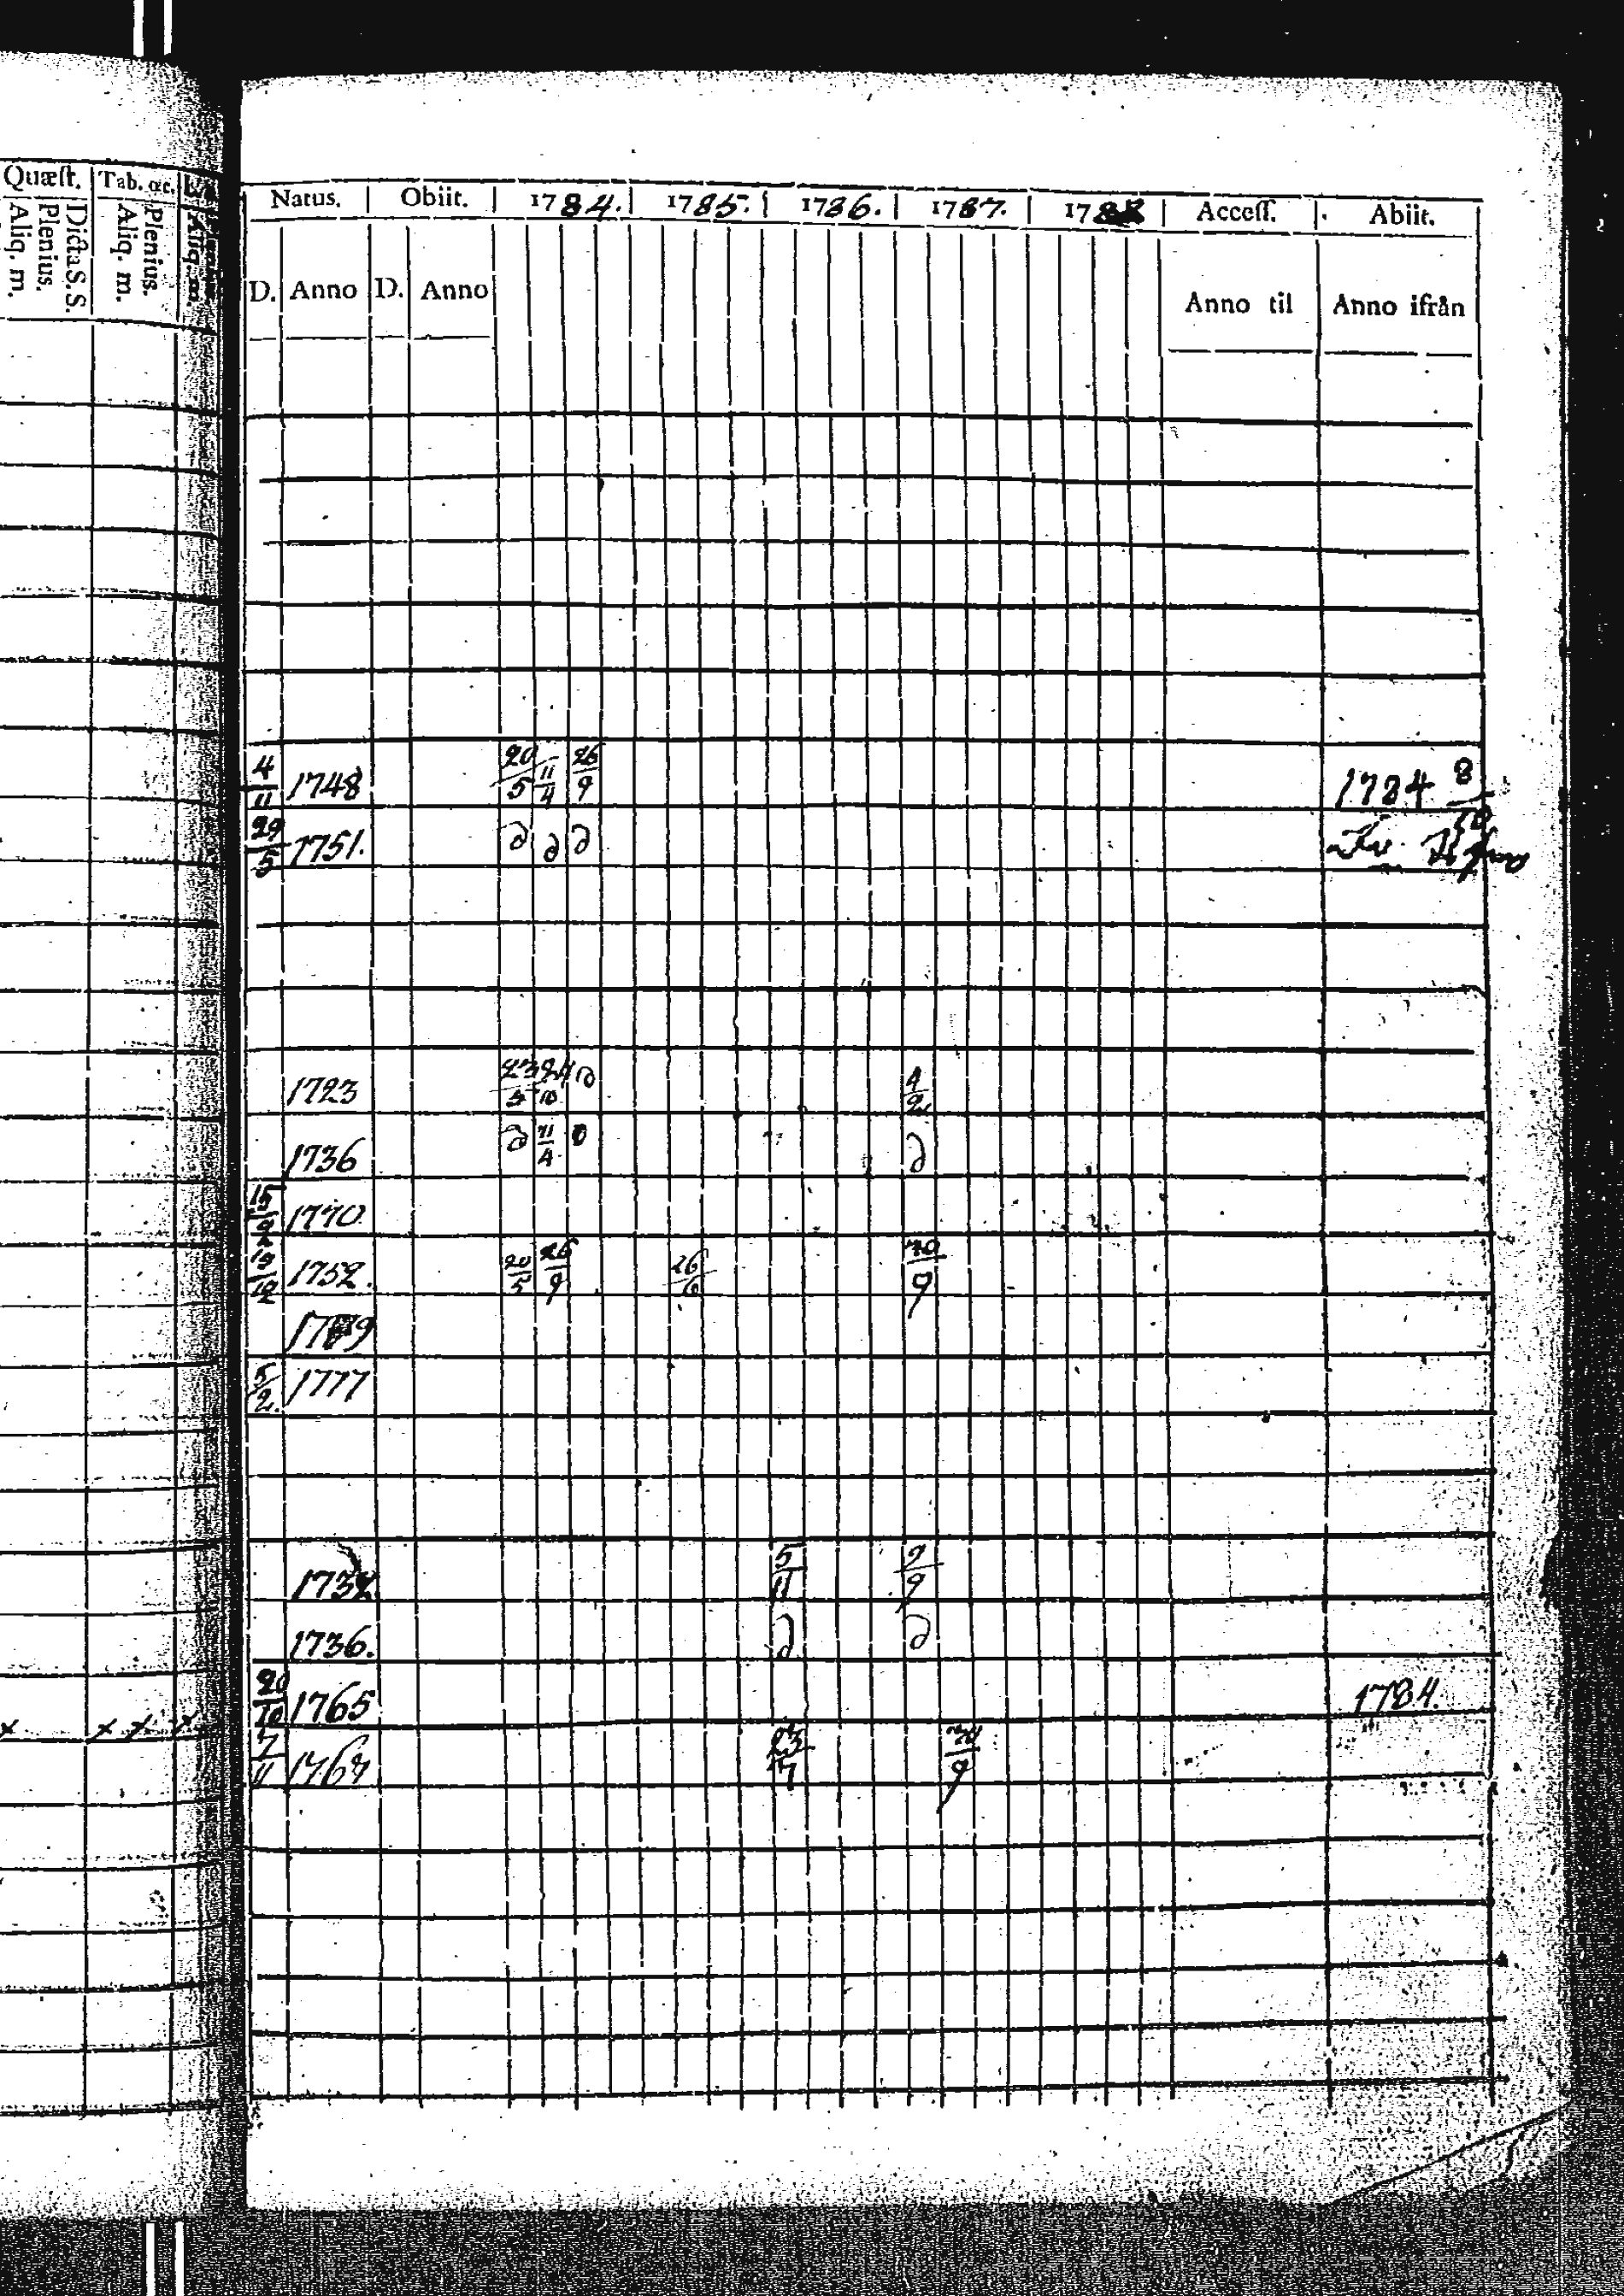 Quæſt. Tab. &c.
Dicta S.S. Plenius. Aliq. m. Plenius. Aliq. m. Aliq. m.
Natus. Obiit. 1784. 1785. 1786. 1787. 178 Acceſſ. Abiit.
D. Anno D. Anno Anno til Anno ifrån
4/11 1748 20/5 11/4 26/9 1784 8/10
29/5 1751. ∂ ∂ ∂
1723 23/5 24/10 ∂ 4/2
1736 ∂ 11/4 ∂ ∂
15/2 1770
19/12 1752. 20/5 26/9 26/6 30/9
1779
5/2. 1777
1732 5/11 9/9
1736. ∂ ∂
20/10 1765 1784.
x x x x 7/11 1767 23/4 30/9